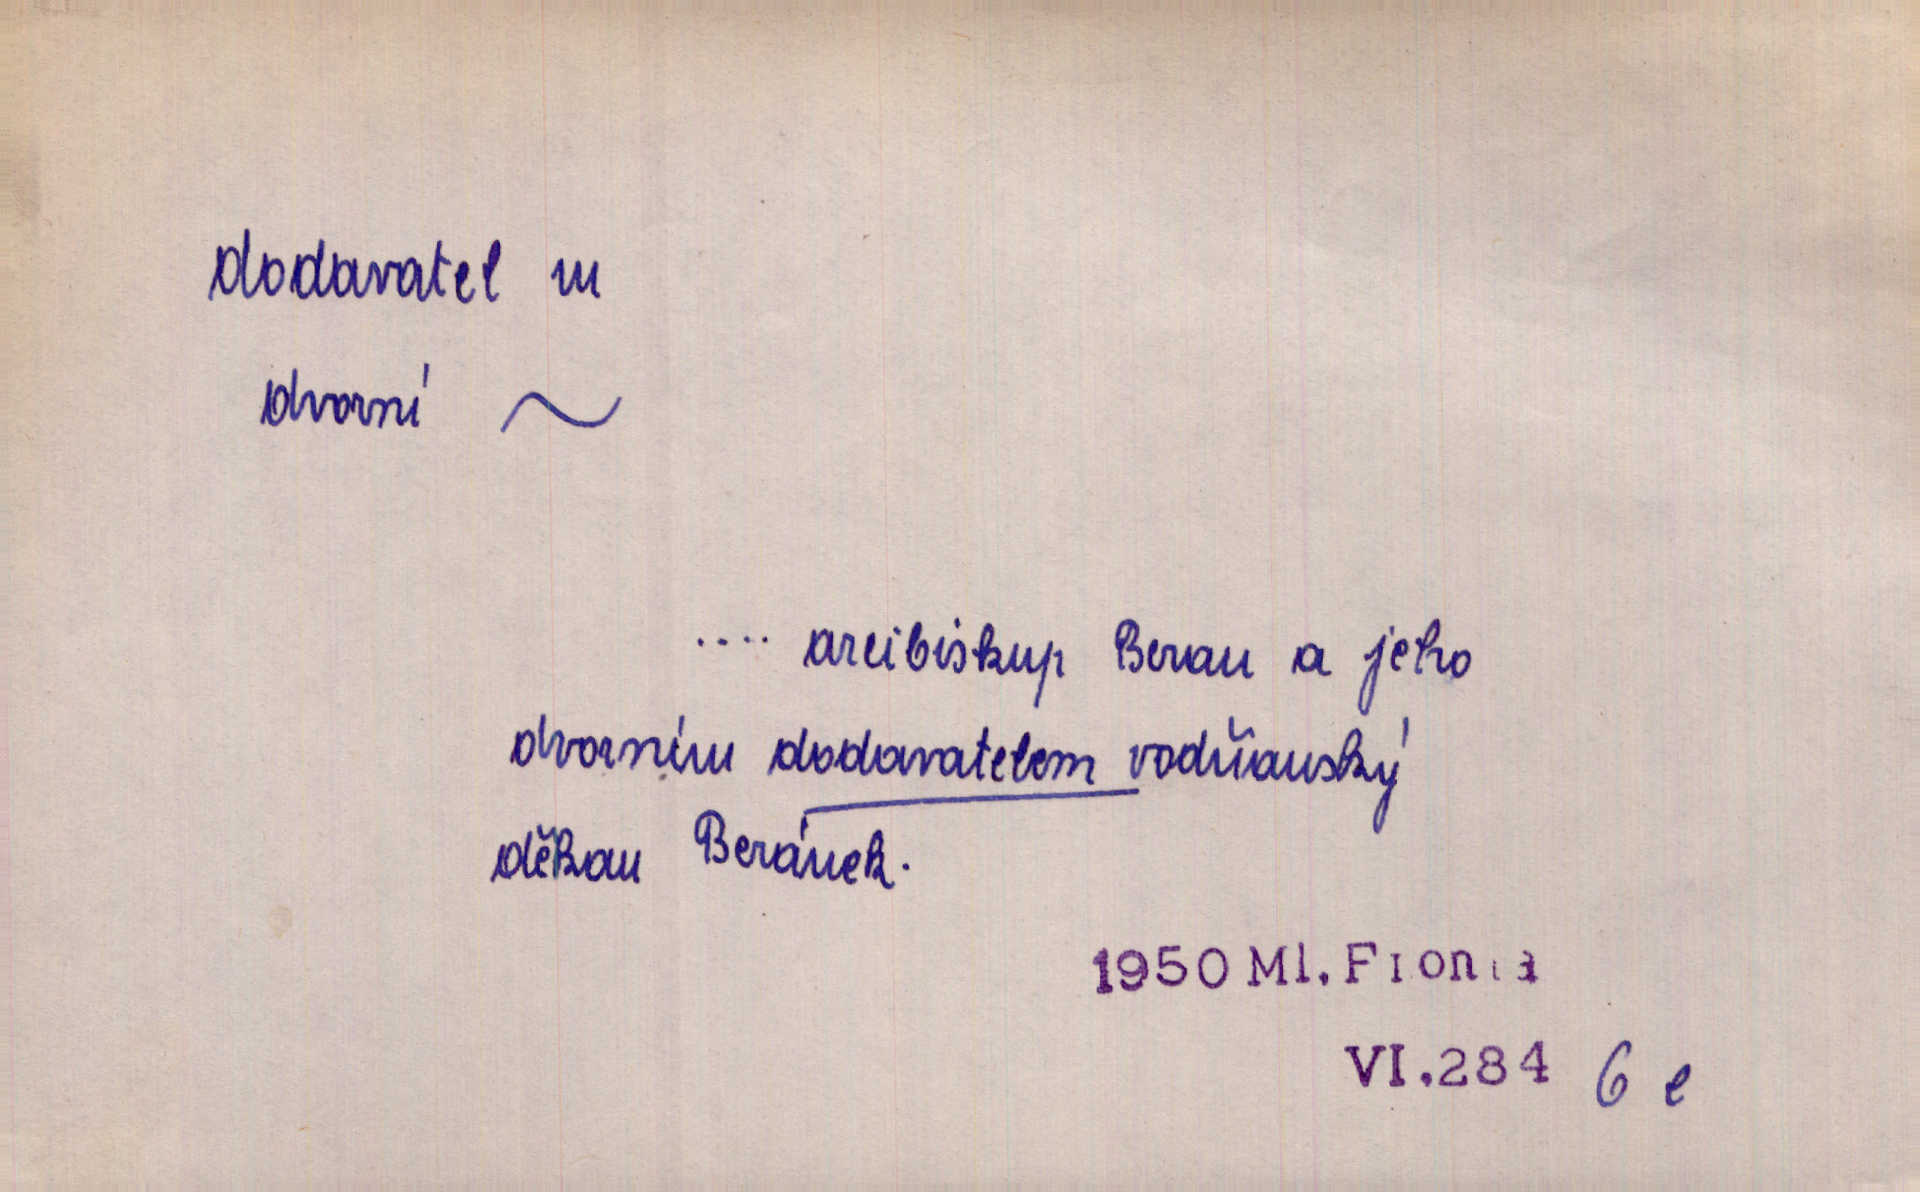 dodavatel m
dvorní ~
.... arcibiskup Beran a jeho
dvorním dodavatelem vodňanský
děkan Beránek.
1950 Ml. Fronta
VI.284 6 e